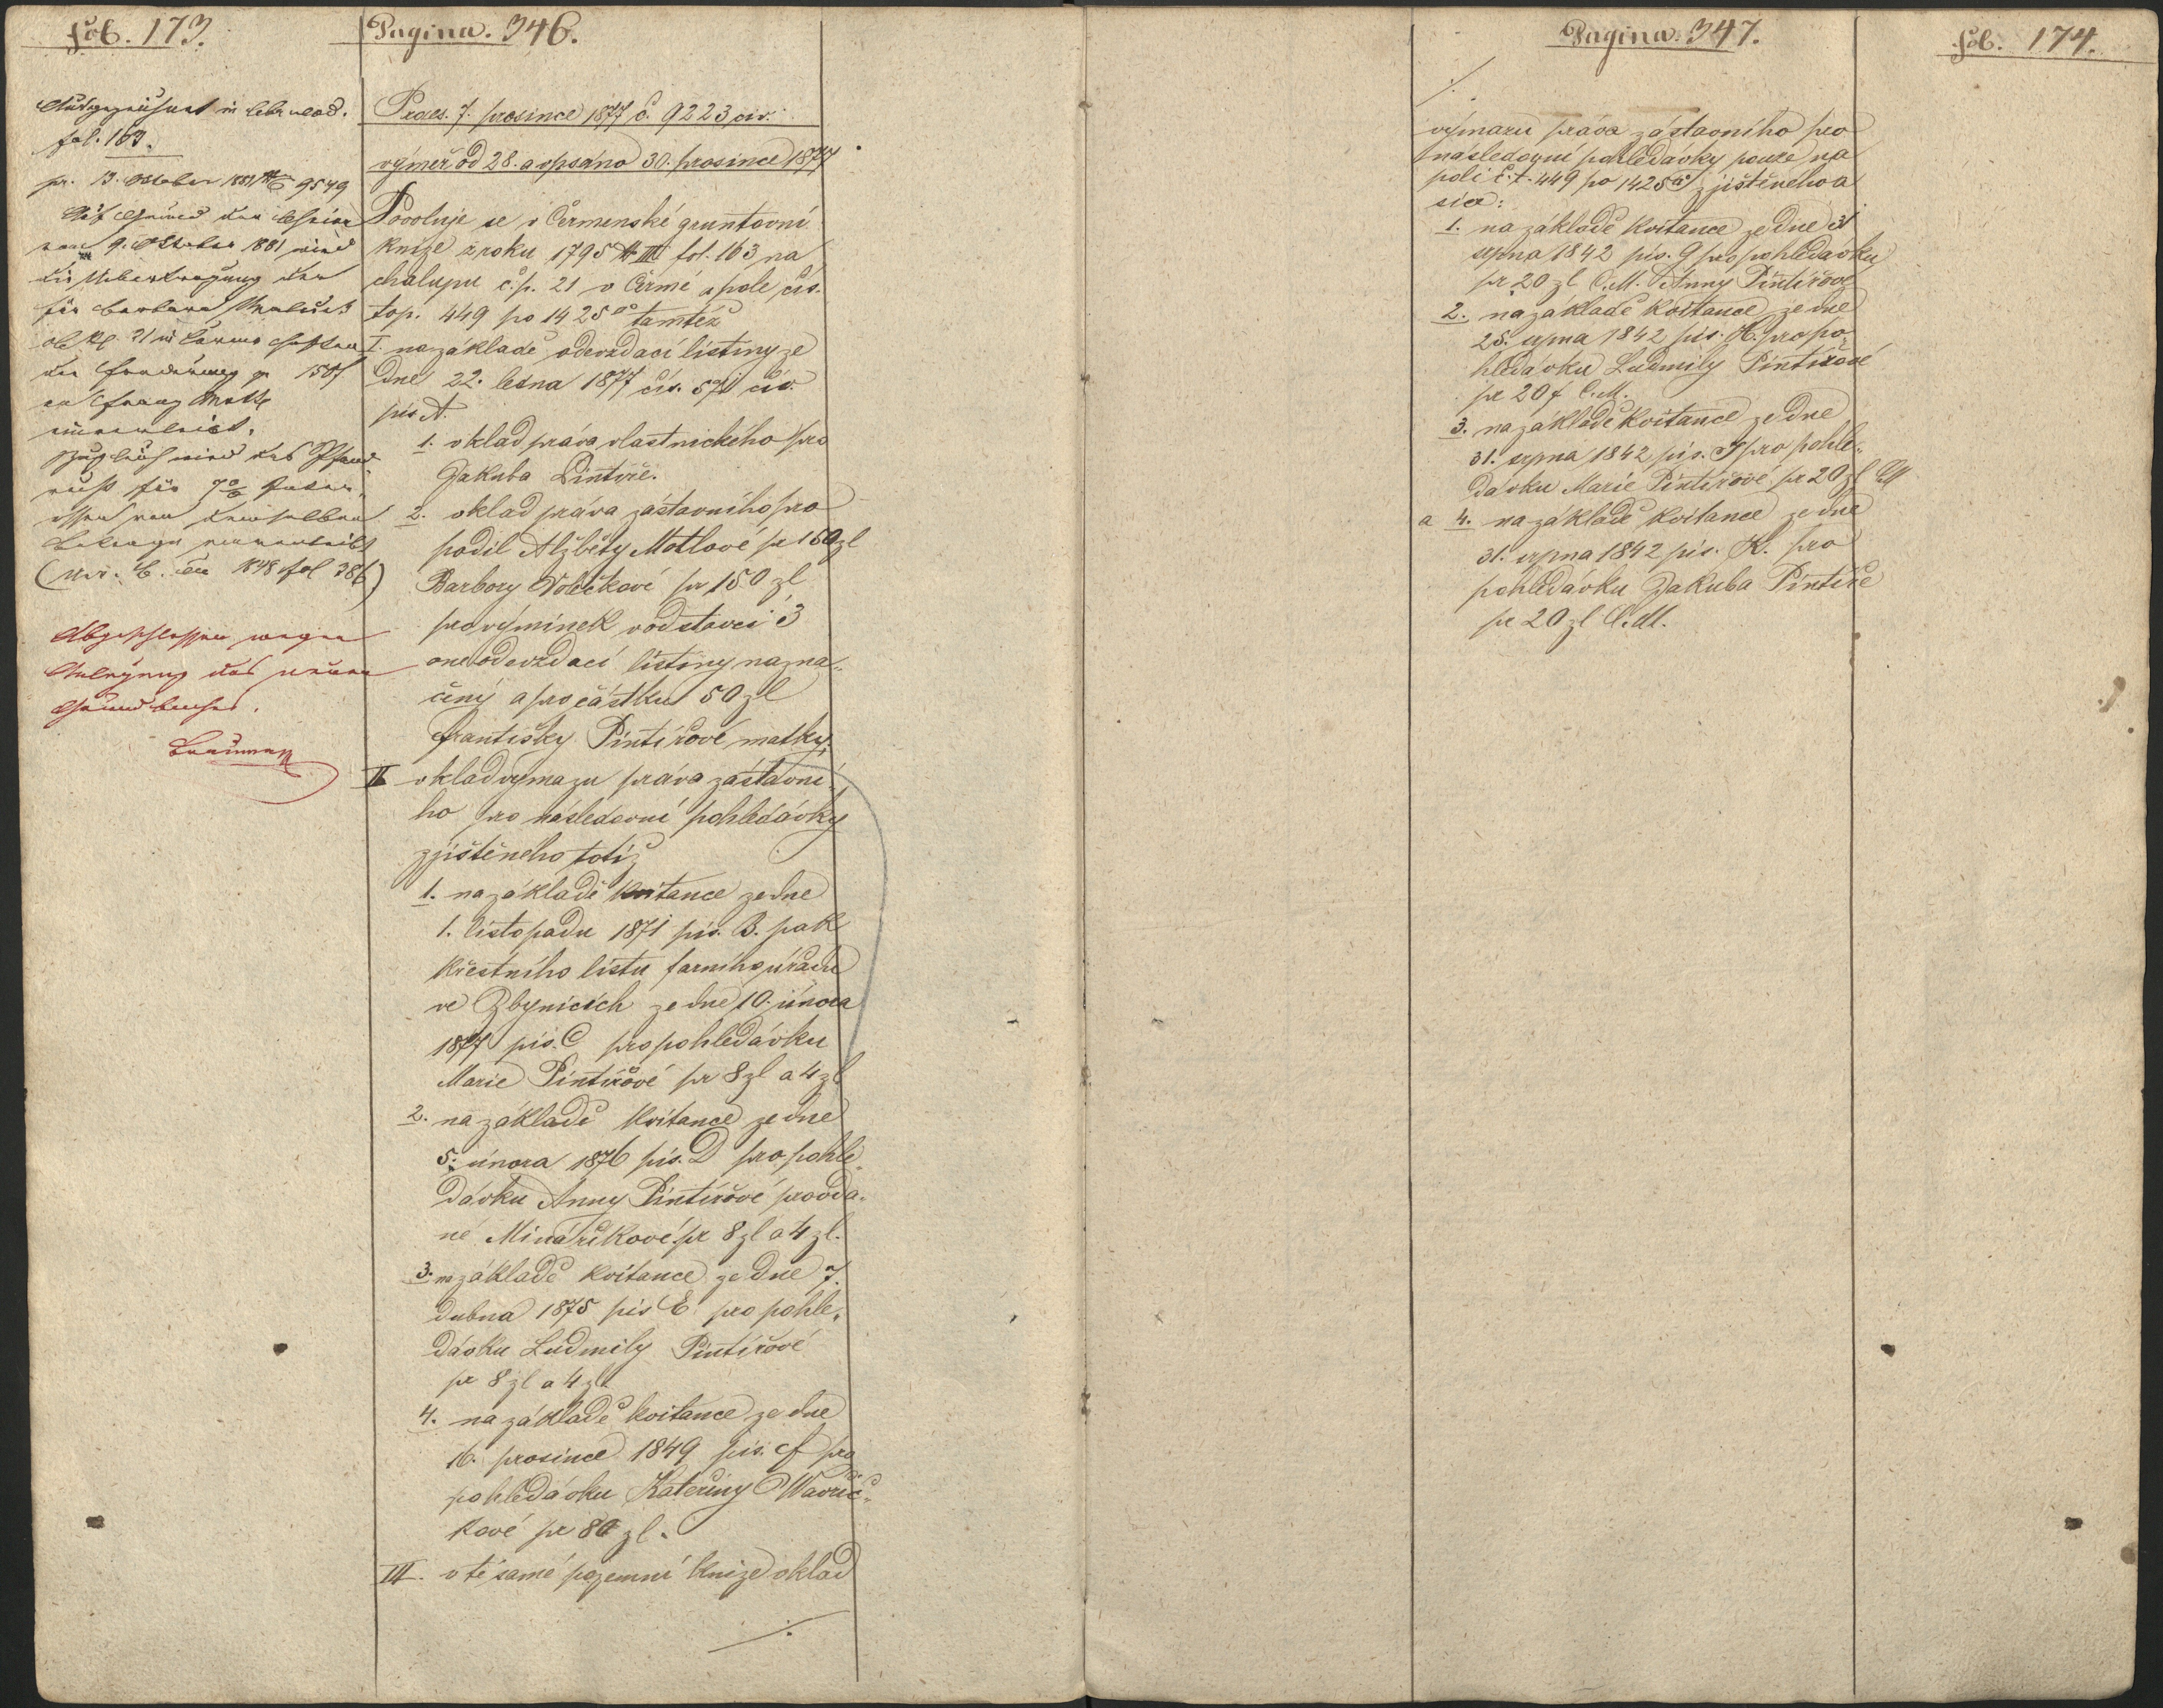 fol. 173.
Pagina. 346.
fol. 163.
pr. 13. October 1881 9549
vom 9. October 1881 wird
die Uebertragung der
für Barbara
150 f
an Franz
Zugleich wird das Pfand¬
von demselben
1848 fol 386)
Abgeschlossen wegen
Anlegung des neuen
Grundbuches.
Praes. 7. prosince 1877 č. 9223 civ.
výměr od 28. a vpsáno 30. prosince 1877
Povoluje se v Čermenské gruntovní
knize z roku 1795 III fol. 163 na
chalupu č.p. 21 v Čermé a pole čís.
top. 449 po 1425□° tamtéž
I. na základě odevzdací listiny ze
dne 22. ledna 1877 čís. 571 civ
pis A.
1. vklad práva vlastnického pro
Jakuba Pintíře.
2. vklad práva zástavního pro
podíl Alžběty Motlové pr 150 zl
Barbory pr 150 zl
pro výminek v odstavci 3
one odevzdací listiny nazna„
čený a pro částku 50 zl
Františky Pintířové matky.
II vklad výmazu práva zástavní
ho pro následovní pohledávky
zjištěného totiž
1. na základě kvitance ze dne
1. listopadu 1871 pís. B. pak
křestního listu farního úřadu
ve Zbynicích ze dne 10. února
1877 pís. C pro pohledávku
Marie Pintířové pr 8 zl a 4 zl
2. na základě kvitance ze dne
5. února 1876 pís. D pro pohle„
dávku Anny Pintířové provda„
né Minaříkové pr 8 zl a 4 zl.
3. na základě kvitance ze dne 7.
dubna 1875 pis E pro pohle„
dávku Ludmily Pintířové
pr 8 zl a 4 zl
4. na základě kvitance ze dne
16. prosince 1849 pís. F pro
pohledávku Kateřiny Wavřič„
kové pr 80 zl.
III. v té samé pozemní knize vklad
./.
Pagina. 347.
fol. 174.
./.
výmazu práva zástavního pro
následovní pohledávky pouze na
poli č.t. 449 po 1425□° zjištěného a
sice:
1. na základě kvitance ze dne 31
srpna 1842 pís. G pro pohledávku
pr 20 zl C.M. Anny Pintířové
2. na základě kvitance ze dne
25. srpna 1842 pis. H. pro po„
hledávku Ludmily Pintířové
pr 20 f C.M.
3. na základě kvitance ze dne
31. srpna 1842 pís. J pro pohle„
dávku Marie Pintířové pr 20 zl CM
a 4. na základě kvitance ze dne
31. srpna 1842 pís. K. pro
pohledávku Jakuba Pintíře
pr 20 zl C.M.